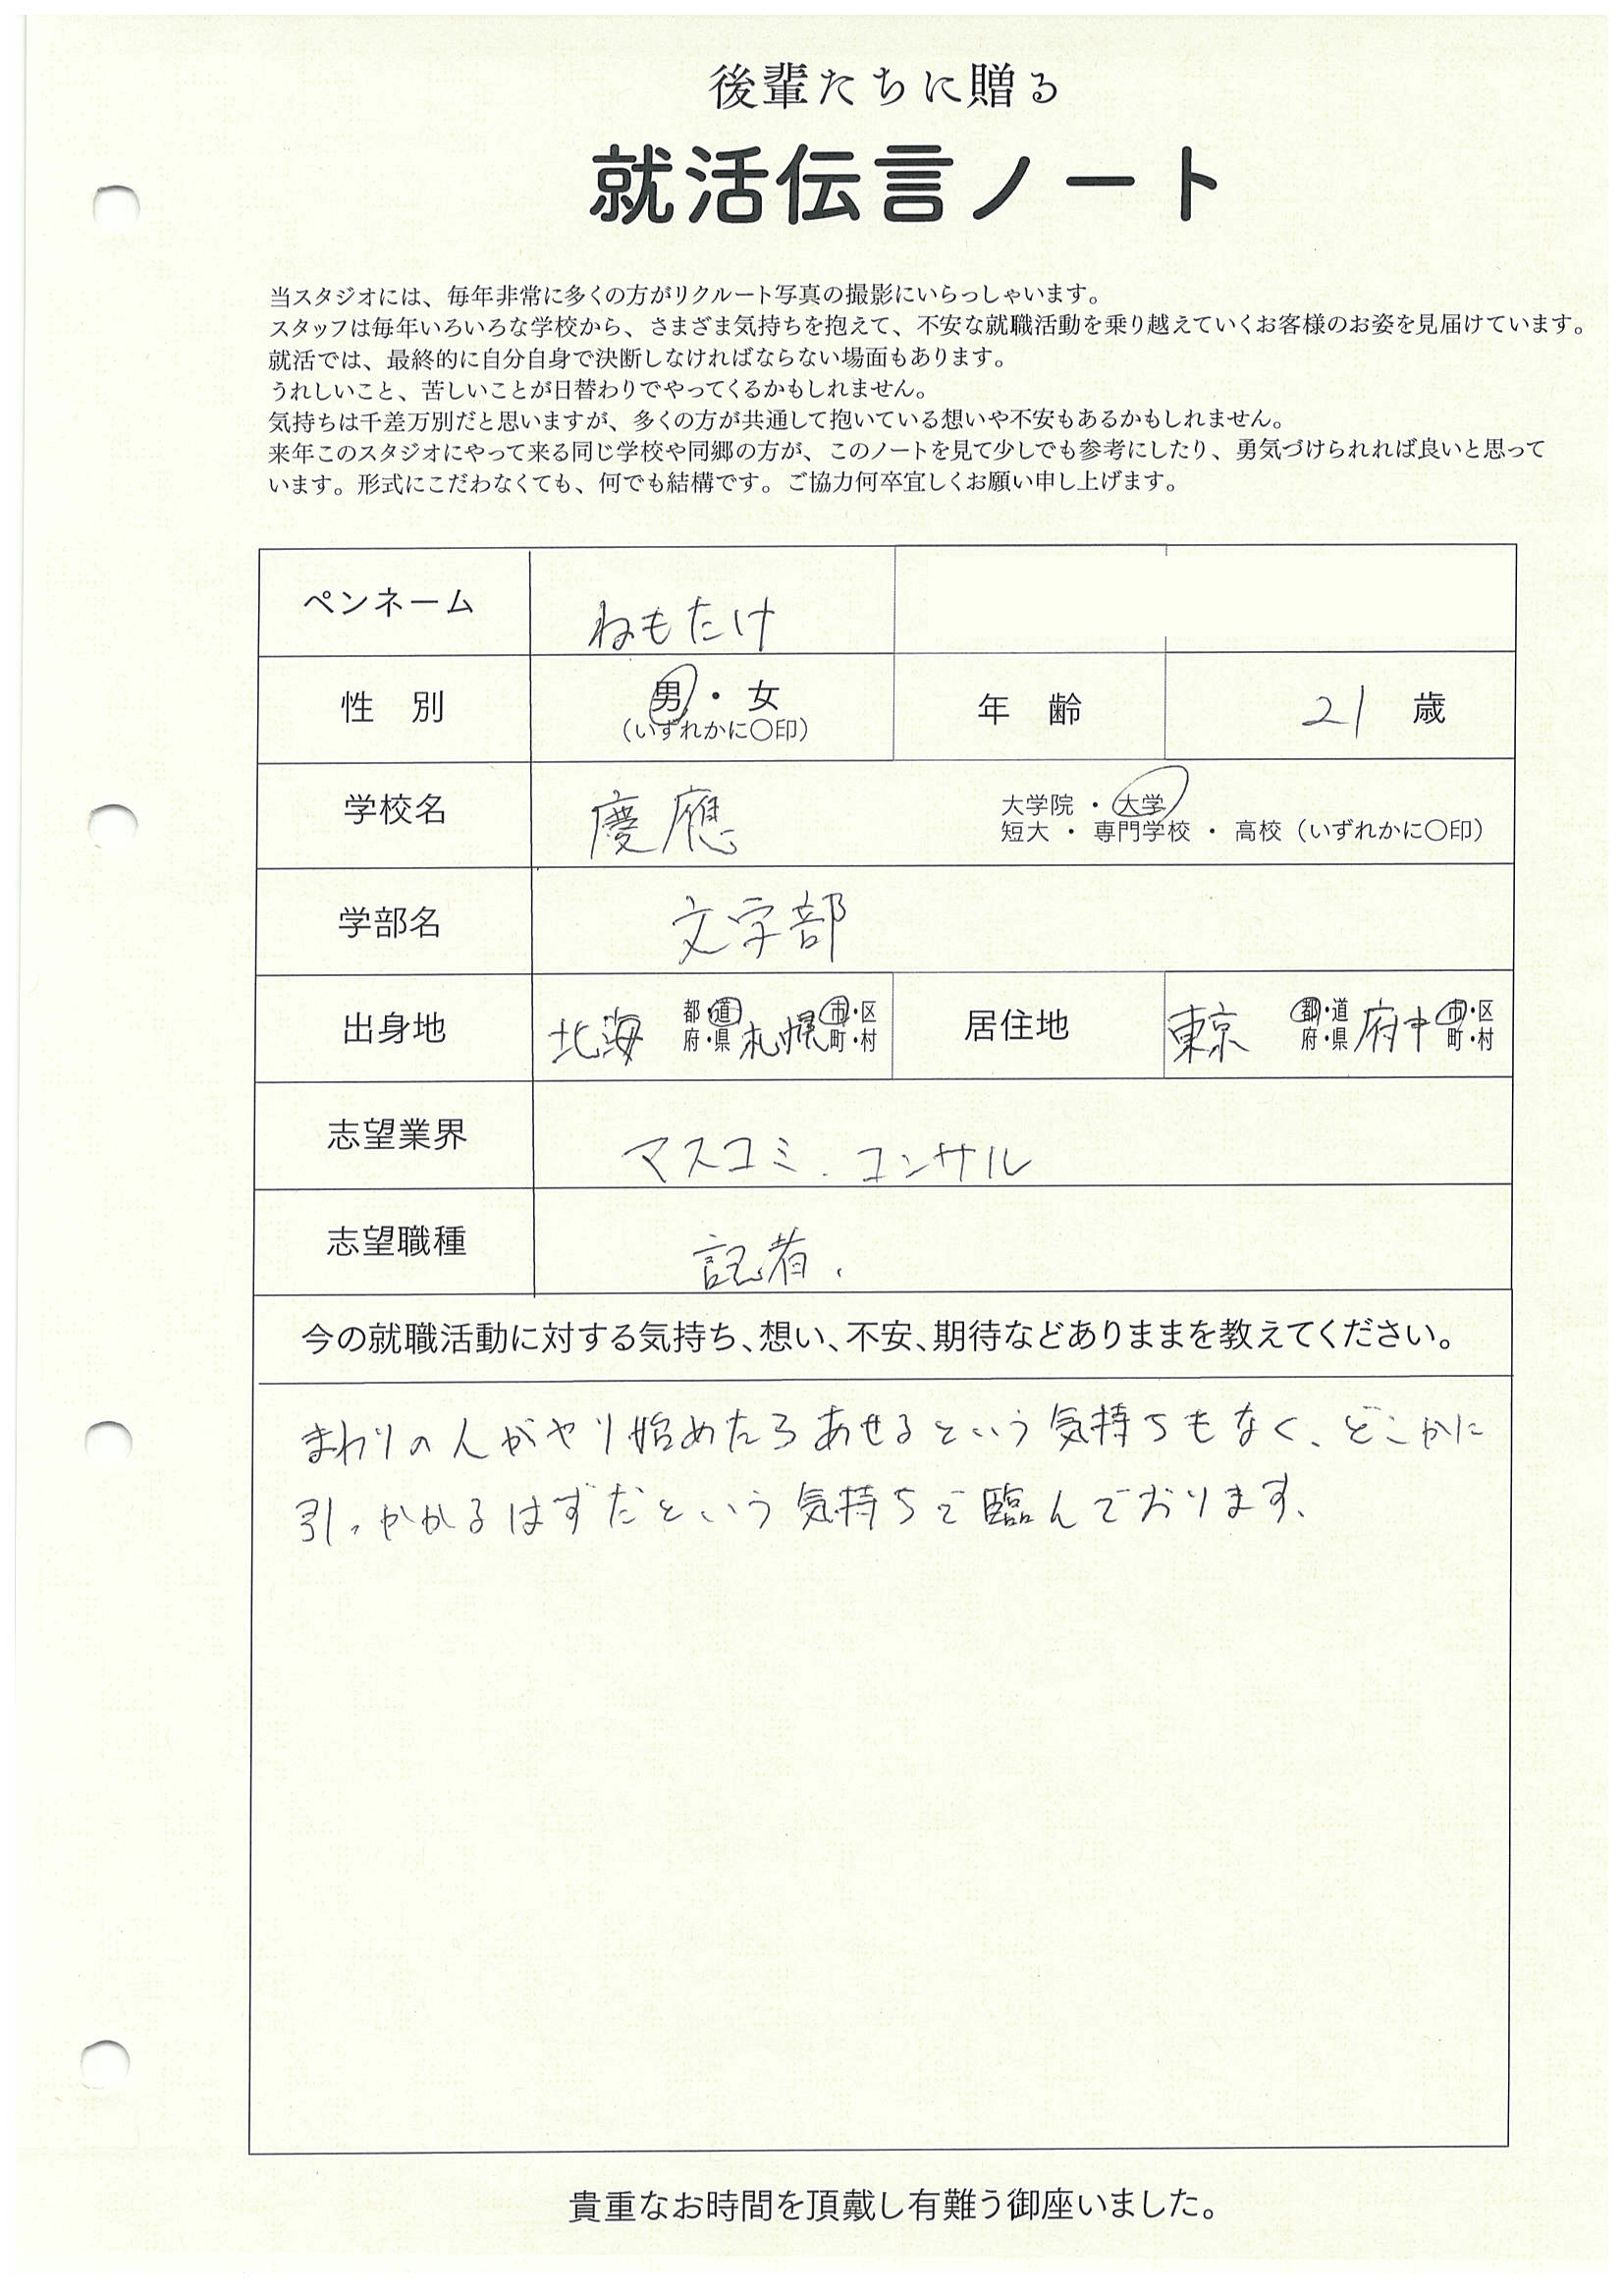 後輩たちに贈る
就活伝言ノート
当スタジオには、毎年非常に多くの方がリクルート写真の撮影にいらっしゃいます。
スタッフは毎年いろいろな学校から、さまざま気持ちを抱えて、不安な就職活動を乗り越えていくお客様のお姿を見届けています。
就活では、最終的に自分自身で決断しなければならない場面もあります。
うれしいこと、苦しいことが日替わりでやってくるかもしれません。
気持ちは千差万別だと思いますが、多くの方が共通して抱いている想いや不安もあるかもしれません。
来年このスタジオにやって来る同じ学校や同郷の方が、このノートを見て少しでも参考にしたり、勇気づけられれば良いと思って
います。形式にこだわなくても、何でも結構です。ご協力何卒宜しくお願い申し上げます。
ペンネーム ねもたけ
性 別 男・女 年 齢 21 歳
(いずれかに〇印)
学校名 慶應 大学院 ・ 大学
短大 ・ 専門学校 ・ 高校(いずれかに〇印)
学部名 文学部
出身地 北海 都・道 府・県 札幌 市・区 町・村 居住地 東京 都・道 府・県 府中 市・区 町・村
志望業界 マスコミ、コンサル
志望職種 記者、
今の就職活動に対する気持ち、想い、不安、期待などありままを教えてください。
まわりの人がやり始めたらあせるという気持ちもなく、どこかに
引っかかるはずだという気持ちで臨んでおります、
貴重なお時間を頂戴し有難う御座いました。